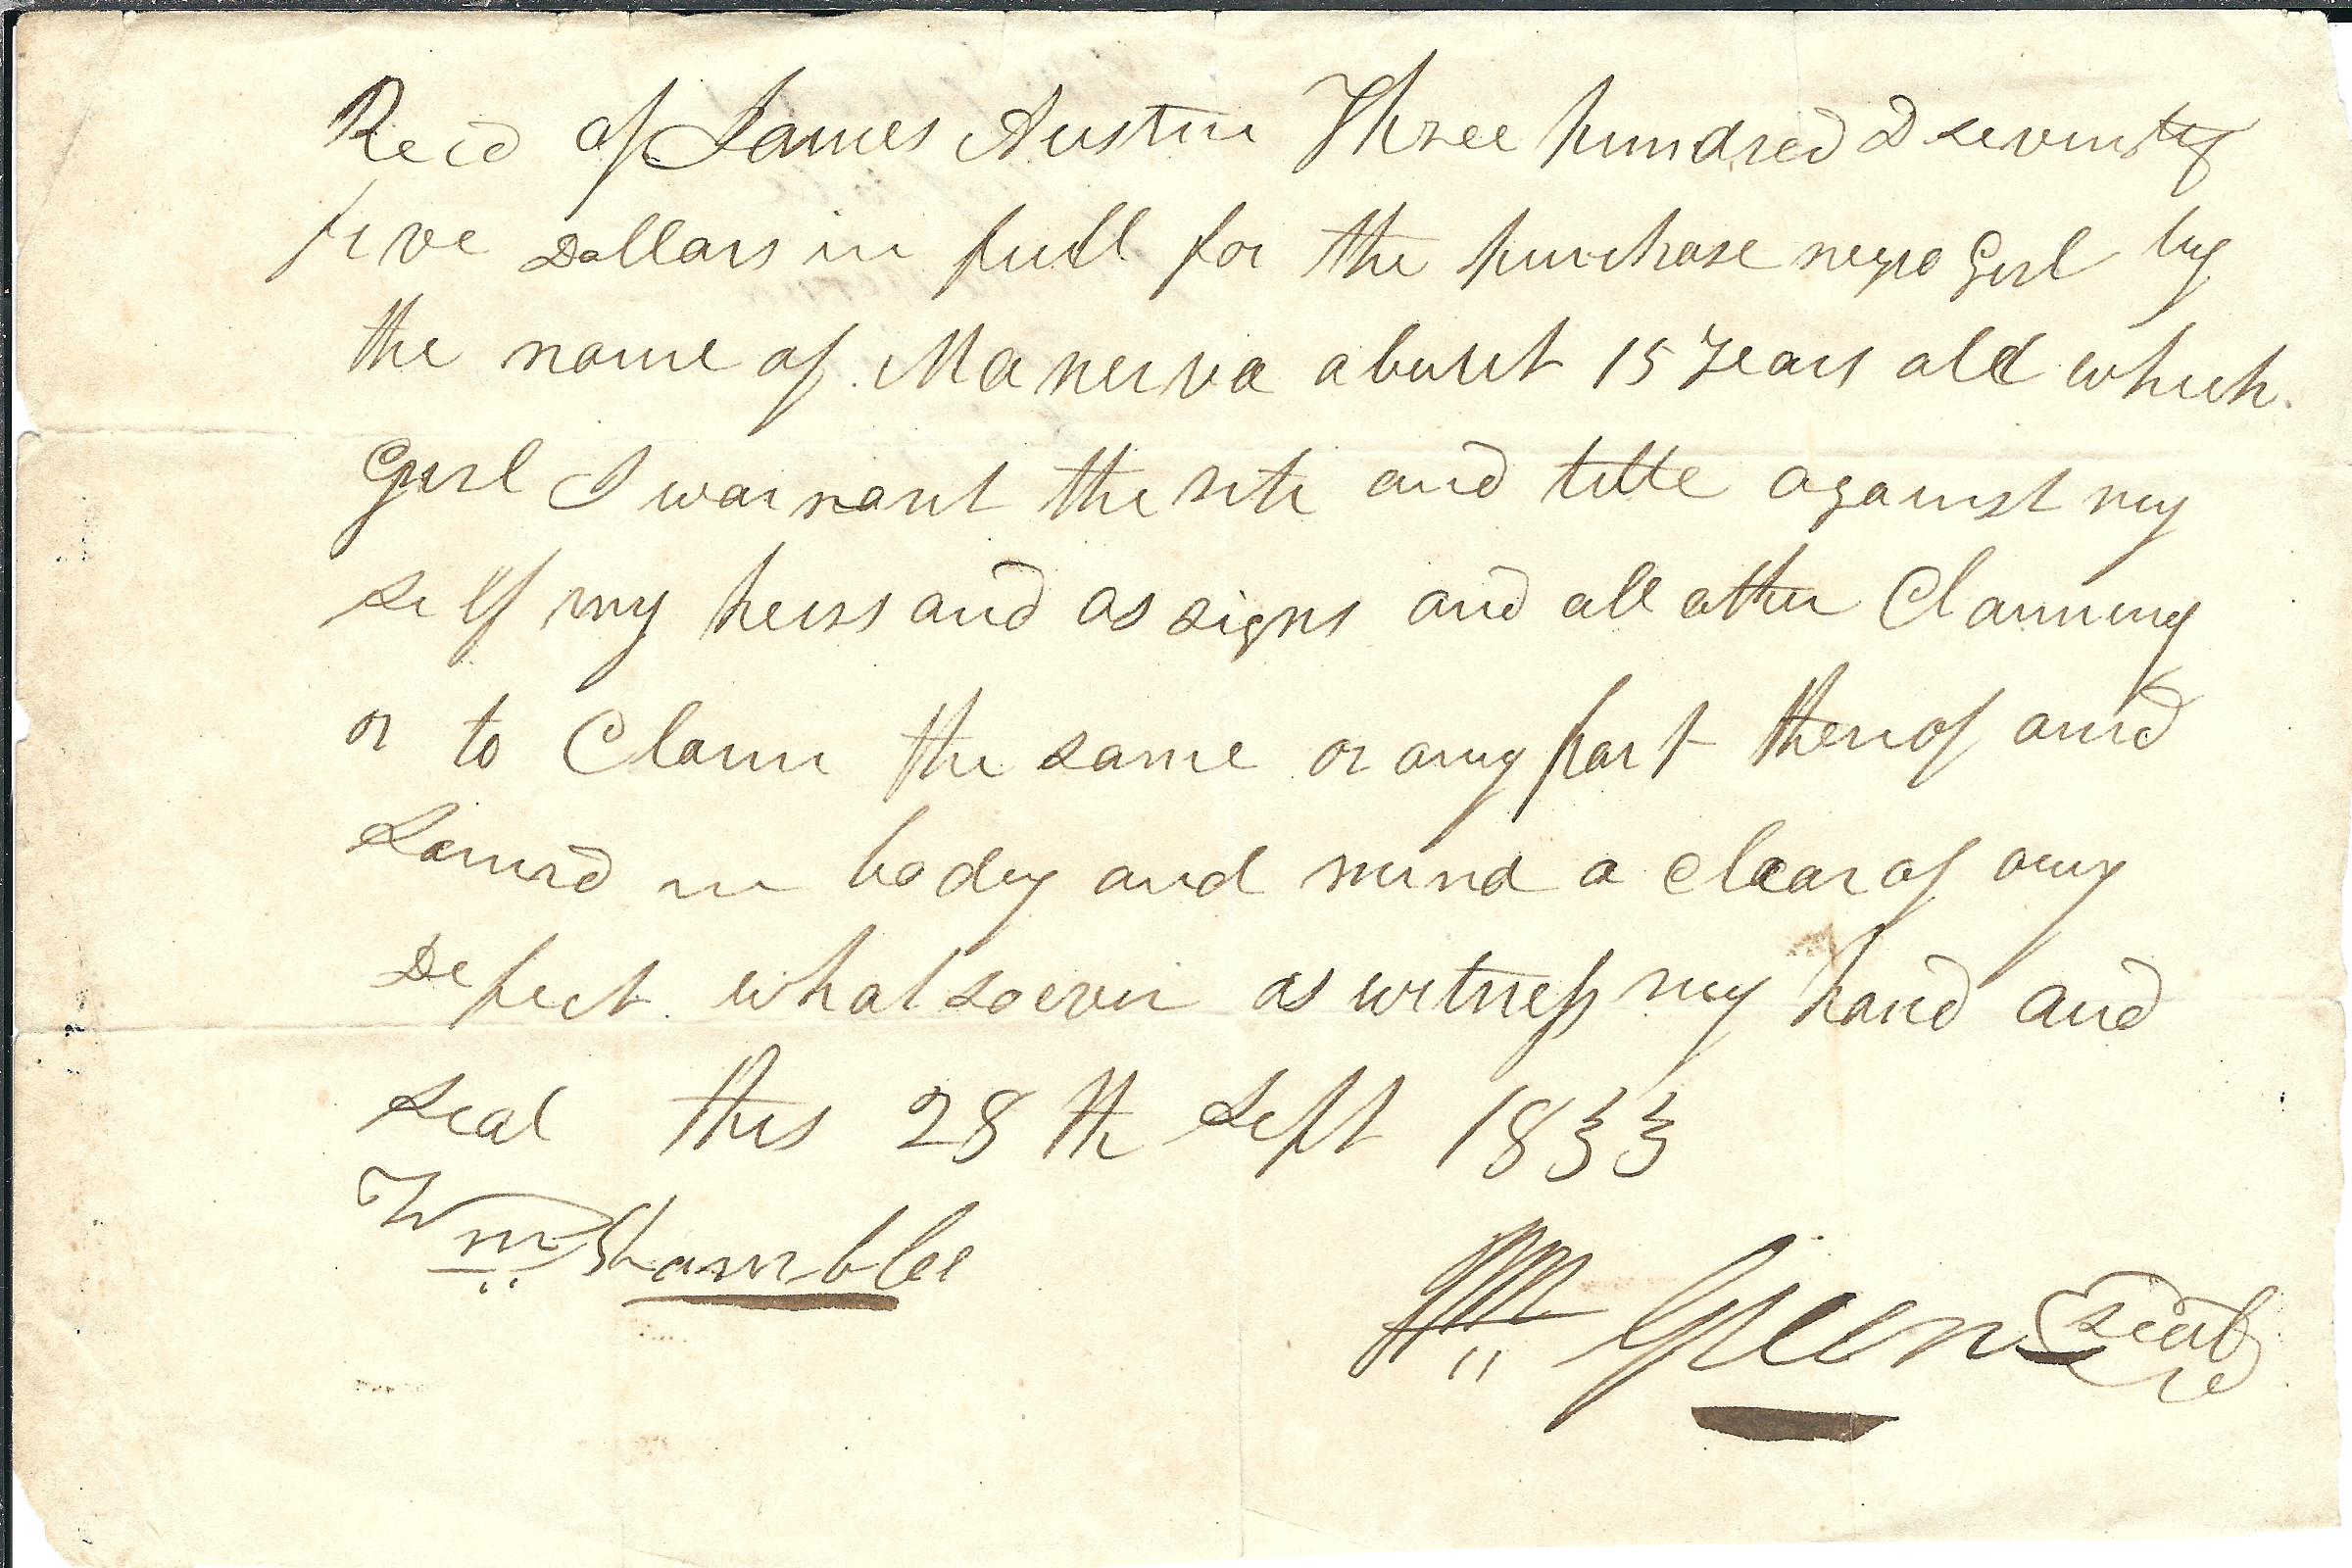 Recd of James Austin Three hundred & seventy
five Dollars in full for the purchase negro Girl by
the name of Manerva about 15 years old which
Girl I warrant the rite and title against my
self my heirs and assigns and all other Claiming
or to Claim the same or any part thereof and
Sound in body and mind a clear of any
Defect whatsoever as witness my hand and
seal this 28th Sept 1833
Wm Shamblee
Wm Green Seal